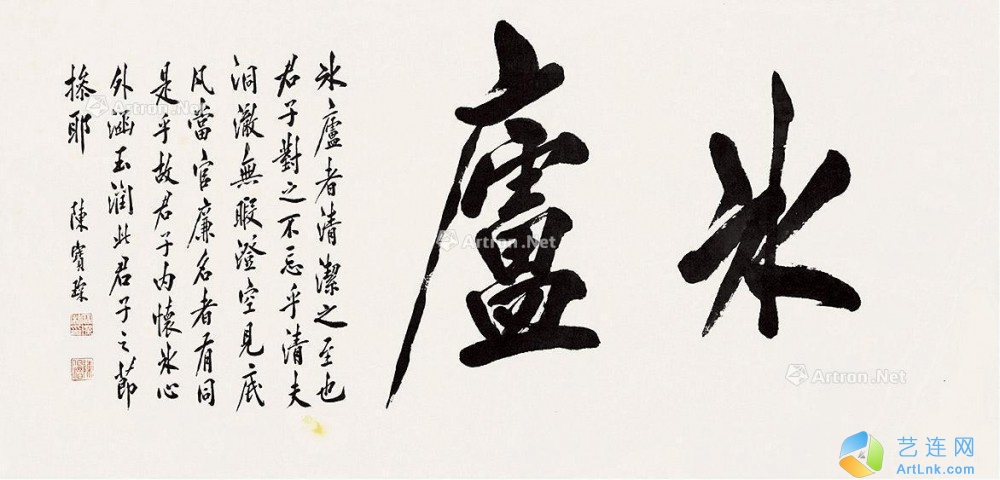 氷廬
氷廬者清潔之至也
君子對之不忘乎清夫
洞澈無暇澄空見底
凡當官廉名者有同
是乎故君子內懷氷心
外涵玉潤此君子之節
操耶
陳寶琛
Artron.Net
Artron.Net
Artron.Net
Artron.Net
艺连网
ArtLnk.com